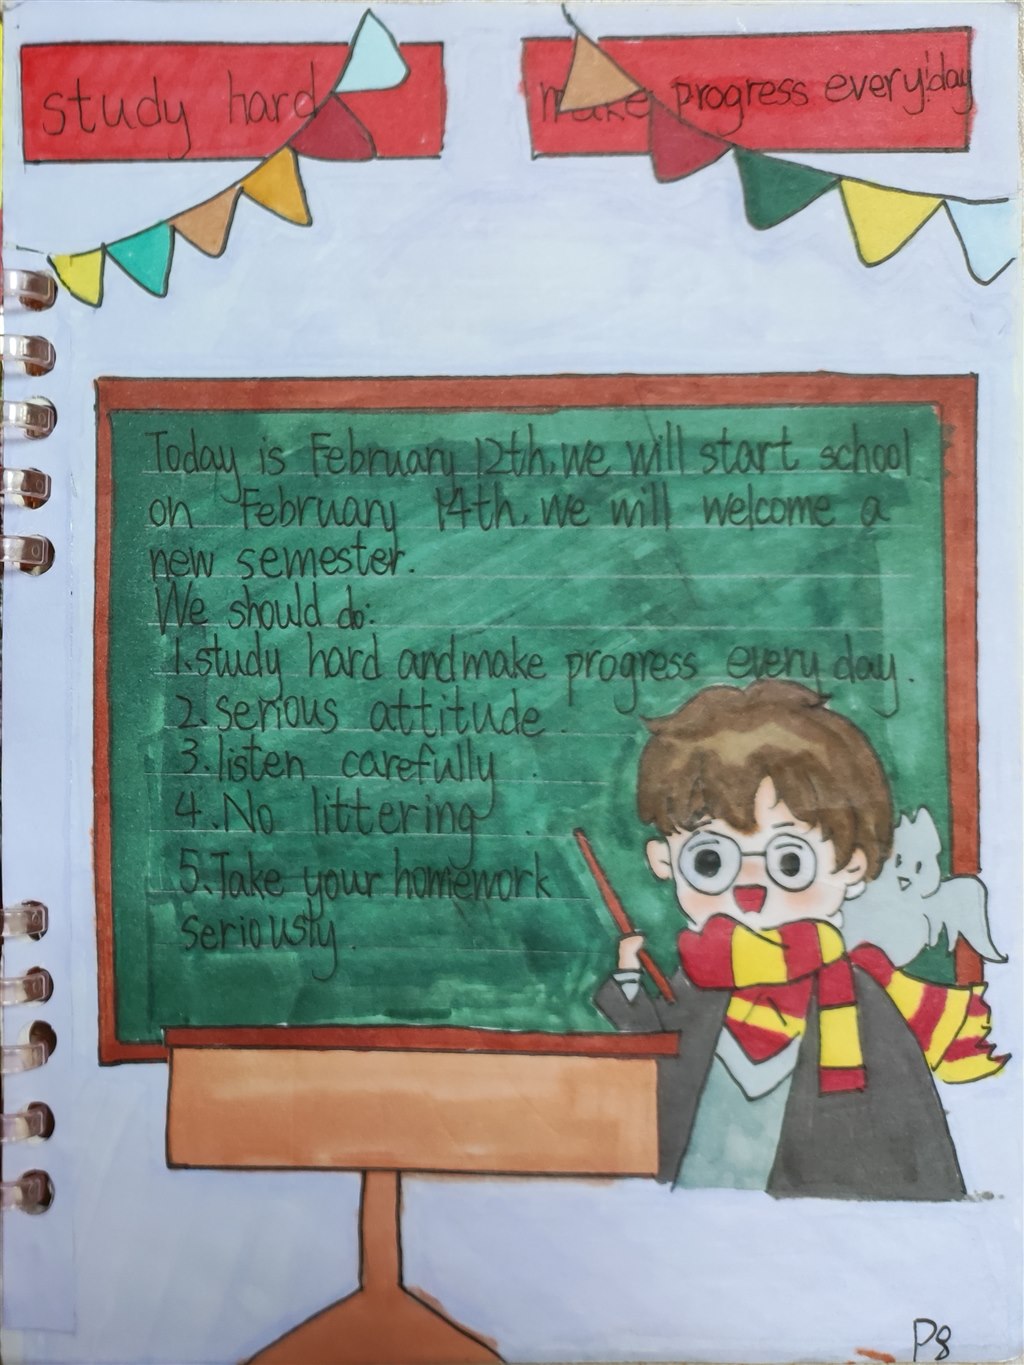 study hard
make progress everyday
Today is February 12th, we will start school
on February 14th. We will welcome a
new semester.
We should do:
1.study hard and make progress every day.
2. serious attitude.
3. listen carefully.
4. No littering.
5. Take your homework
seriously.
P8